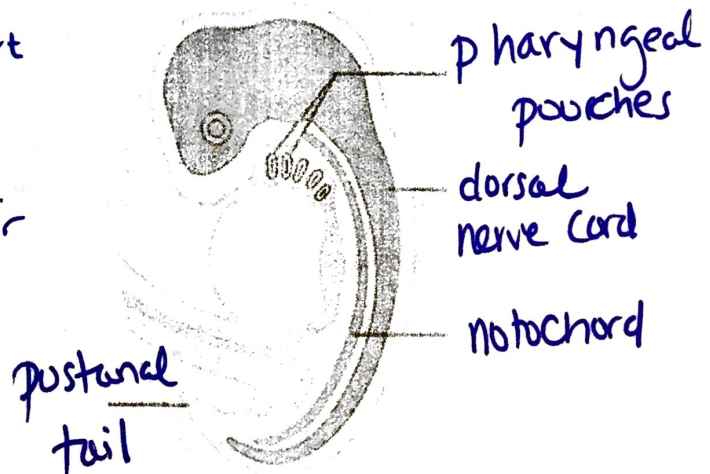 rt
pharyngeal
pouches
dorsal
nerve cord
r
notochord
postanal
tail